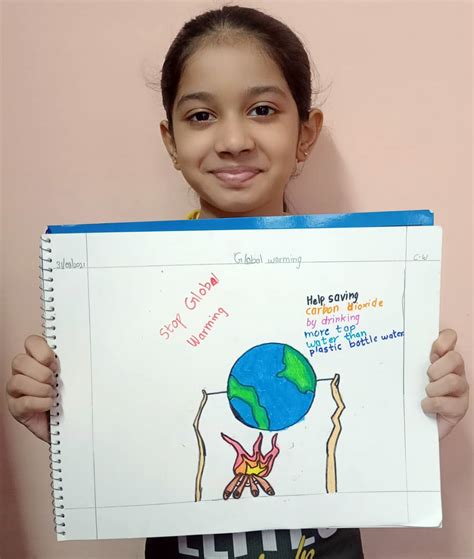 31/03/2021
Global warming
C.W
Stop Global
Warming
Help saving
carbon dioxide
by drinking
more tap
water than
plastic bottle water